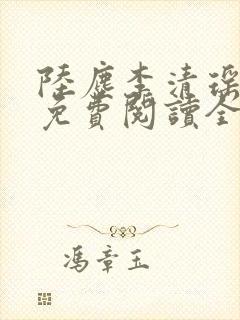 陸塵李清瑤
免費閱讀全
馮章玉